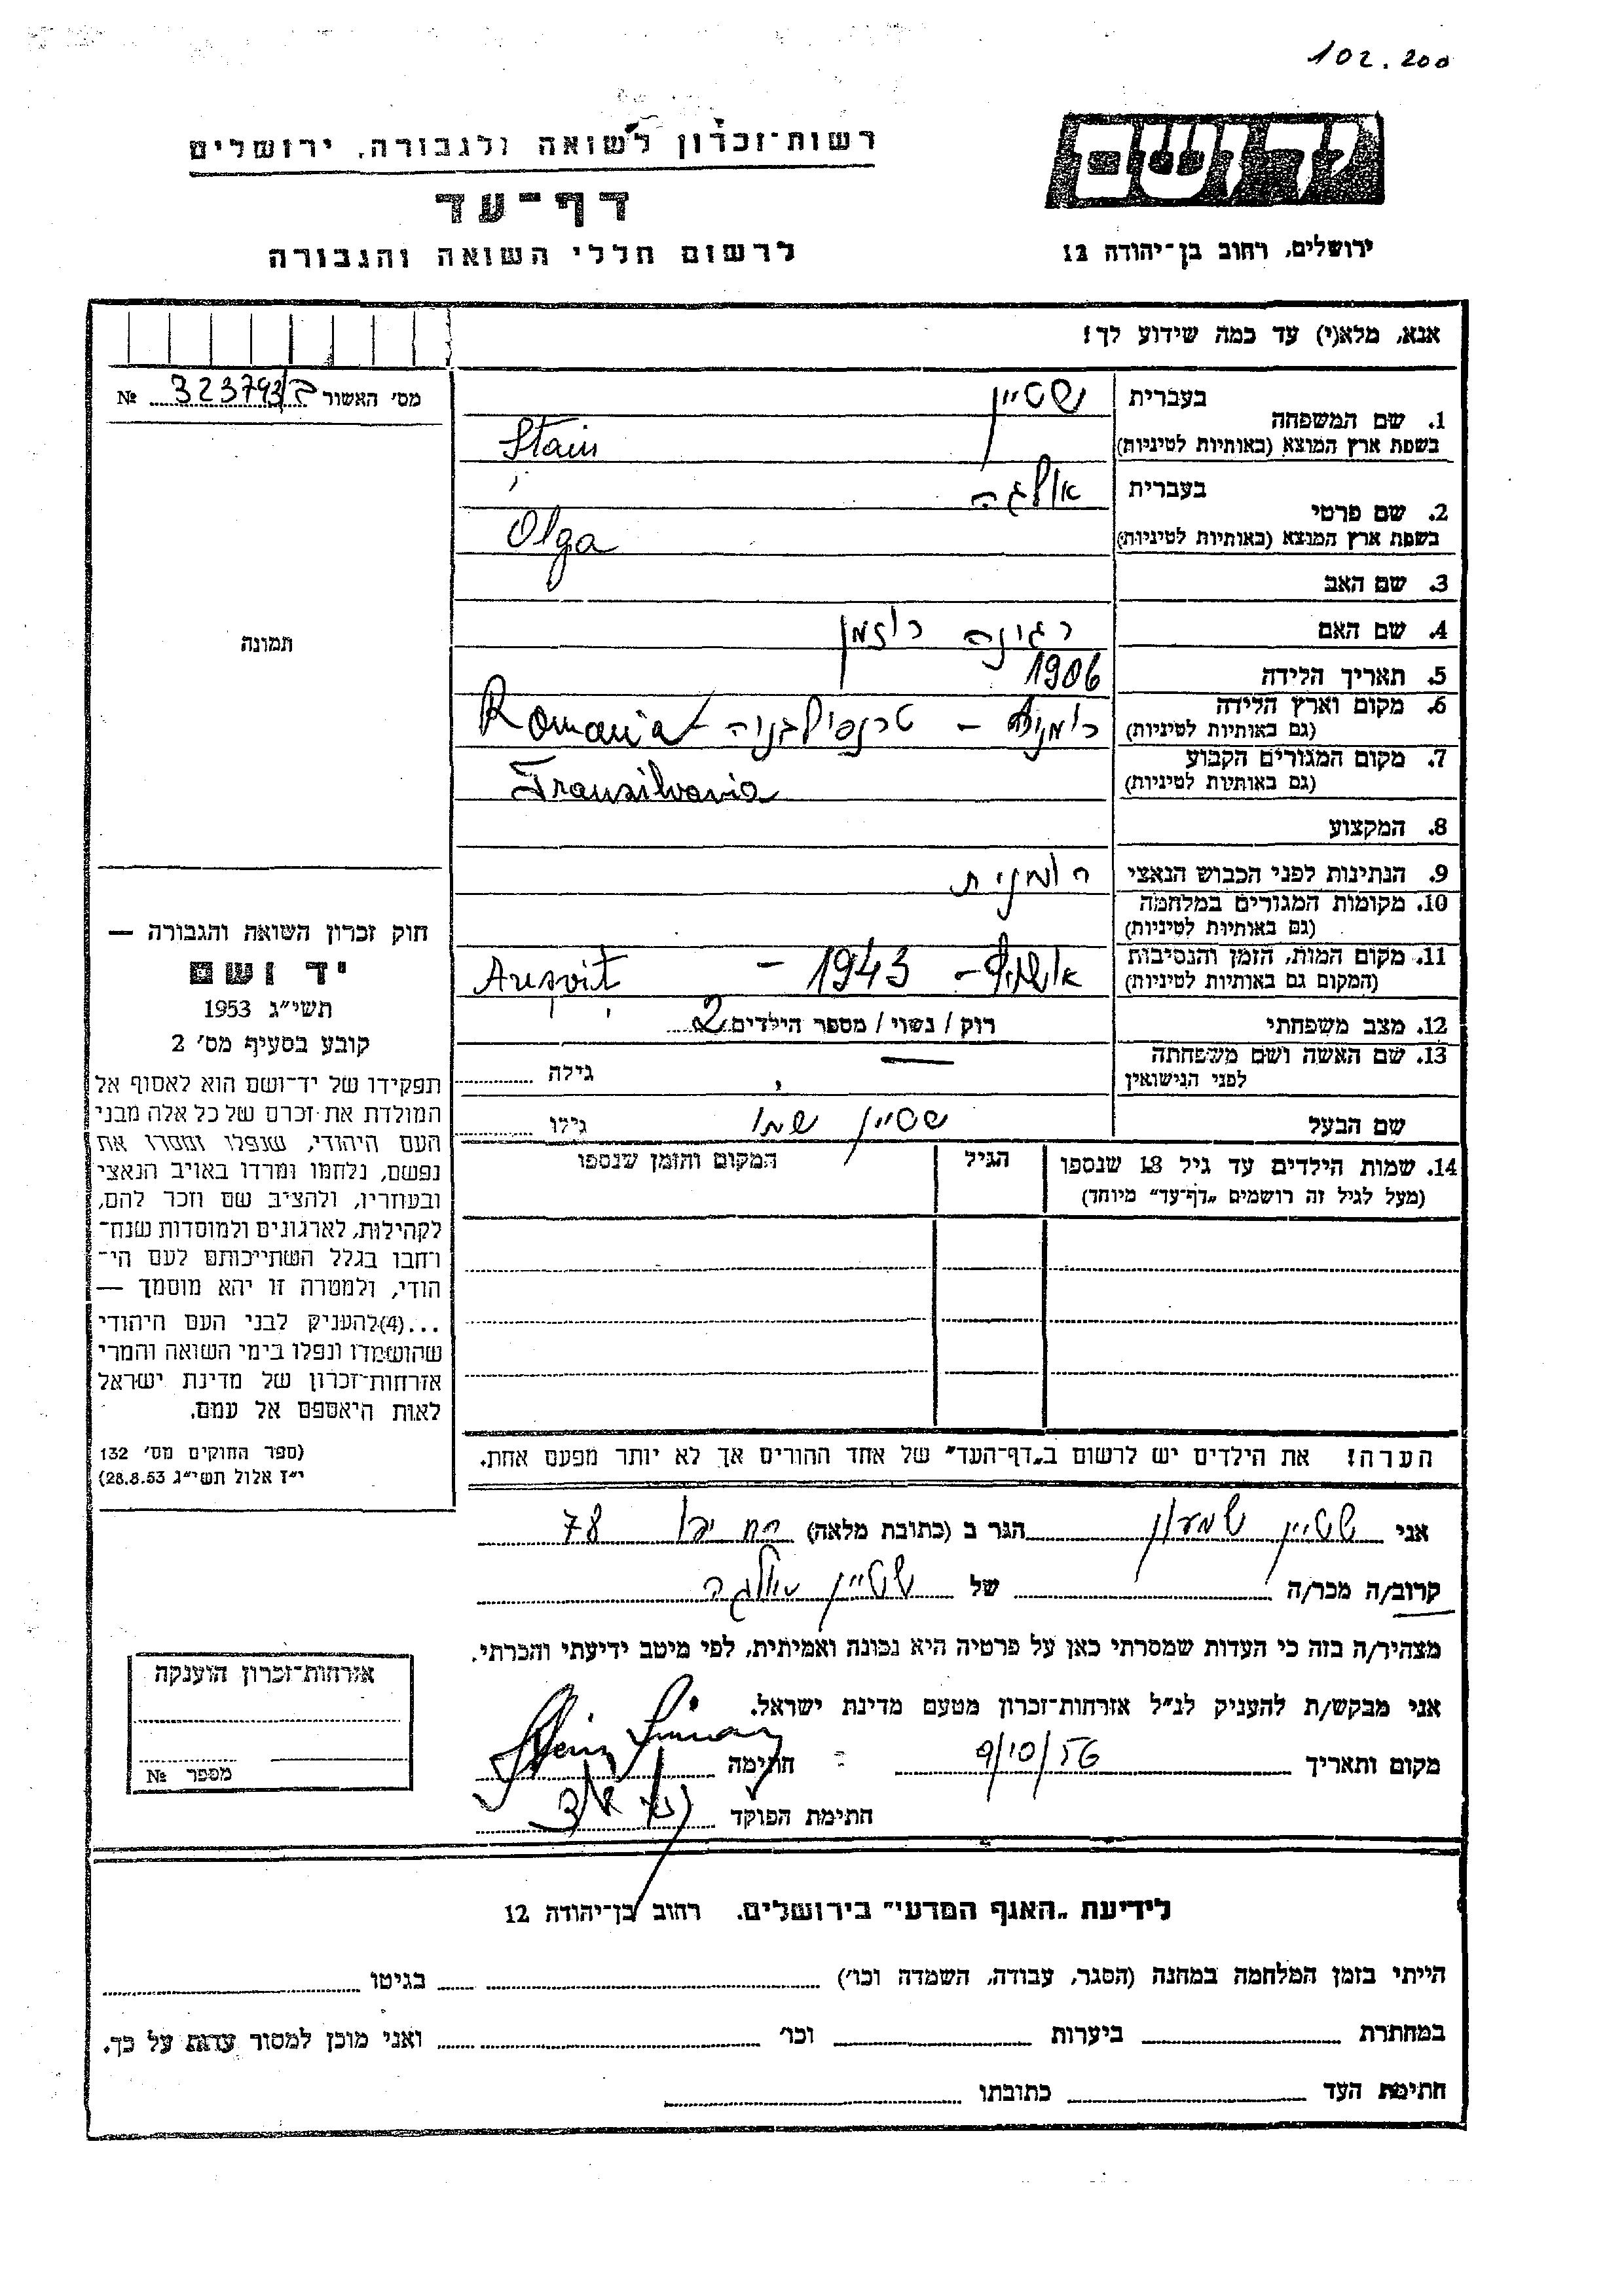 102.200
יד ושם
ירושלים, רחוב בן־יהודה 12
רשות־זכרון לשואה ולגבורה, ירושלים
דף־עד
לרשום חללי השואה והגבורה
אנא, מלא(י) עד כמה שידוע לך!
מס' האשור 323793 №
1. שם המשפחה
בעברית שטיין
בשפת ארץ המוצא (באותיות לטיניות) Stain
2. שם פרטי
בעברית אולגה
בשפת ארץ המוצא (באותיות לטיניות) Olga
3. שם האב
4. שם האם רגינה רוזמן
5. תאריך הלידה 1906
6. מקום וארץ הלידה
(גם באותיות לטיניות) רומניה – טרנסילבניה – Romania
7. מקום המגורים הקבוע
(גם באותיות לטיניות) Transilvania
8. המקצוע
9. הנתינות לפני הכבוש הנאצי רומנית
10. מקומות המגורים במלחמה
(גם באותיות לטיניות)
11. מקום המות, הזמן והנסיבות
(המקום גם באותיות לטיניות) – 1943 – Ausvit
12. מצב משפחתי רוק / נשוי / מספר הילדים 2
13. שם האשה ושם משפחתה
לפני הנישואין — גילה
שם הבעל שטיין גילו
14. שמות הילדים עד גיל 18 שנספו
(מעל לגיל זה רושמים „דף־עד” מיוחד)
הגיל
המקום והזמן שנספו
הערה! את הילדים יש לרשום ב„דף־העד” של אחד ההורים אך לא יותר מפעם אחת.
תמונה
חוק זכרון השואה והגבורה —
יד ושם
תשי״ג 1953
קובע בסעיף מס' 2
תפקידו של יד־ושם הוא לאסוף אל
המולדת את זכרם של כל אלה מבני
העם היהודי, שנפלו ומסרו את
נפשם, נלחמו ומרדו באויב הנאצי
ובעוזריו, ולהציב שם וזכר להם,
לקהילות, לארגונים ולמוסדות שנח־
רבו בגלל השתייכותם לעם הי־
הודי, ולמטרה זו יהא מוסמך —
...(4)להעניק לבני העם היהודי
שהושמדו ונפלו בימי השואה והמרי
אזרחות־זכרון של מדינת ישראל
לאות היאספם אל עמם.
(ספר החוקים מס' 132
י״ז אלול תשי״ג 28.8.53)
אני שטיין שמעון הגר ב (כתובת מלאה) 78
קרוב/ה מכר/ה של שטיין אולגה
מצהיר/ה בזה כי העדות שמסרתי כאן על פרטיה היא נכונה ואמיתית, לפי מיטב ידיעתי והכרתי.
אני מבקש/ת להעניק לנ״ל אזרחות־זכרון מטעם מדינת ישראל.
מקום ותאריך 9/10/56 חתימה
חתימת הפוקד
אזרחות־זכרון הוענקה
מספר №
לידיעת „האגף המדעי” בירושלים. רחוב בן־יהודה 12
הייתי בזמן המלחמה במחנה (הסגר, עבודה, השמדה וכו') בגיטו
במחתרת ביערות וכו' ואני מוכן למסור עדות על כך.
חתימת העד כתובתו